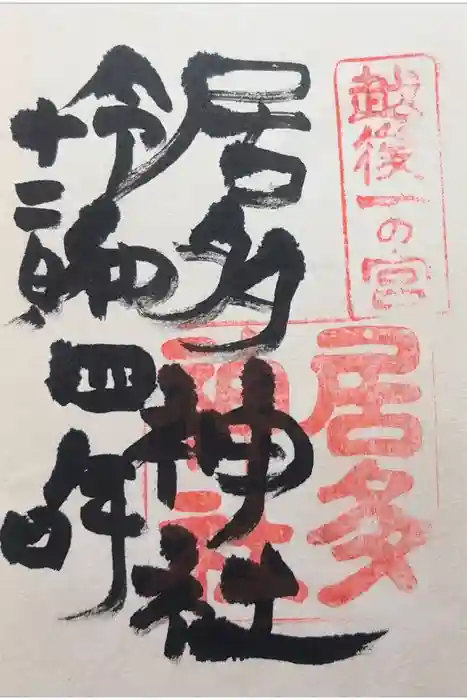 越後一の宮
居多神社
居多神社
令和四年
十二